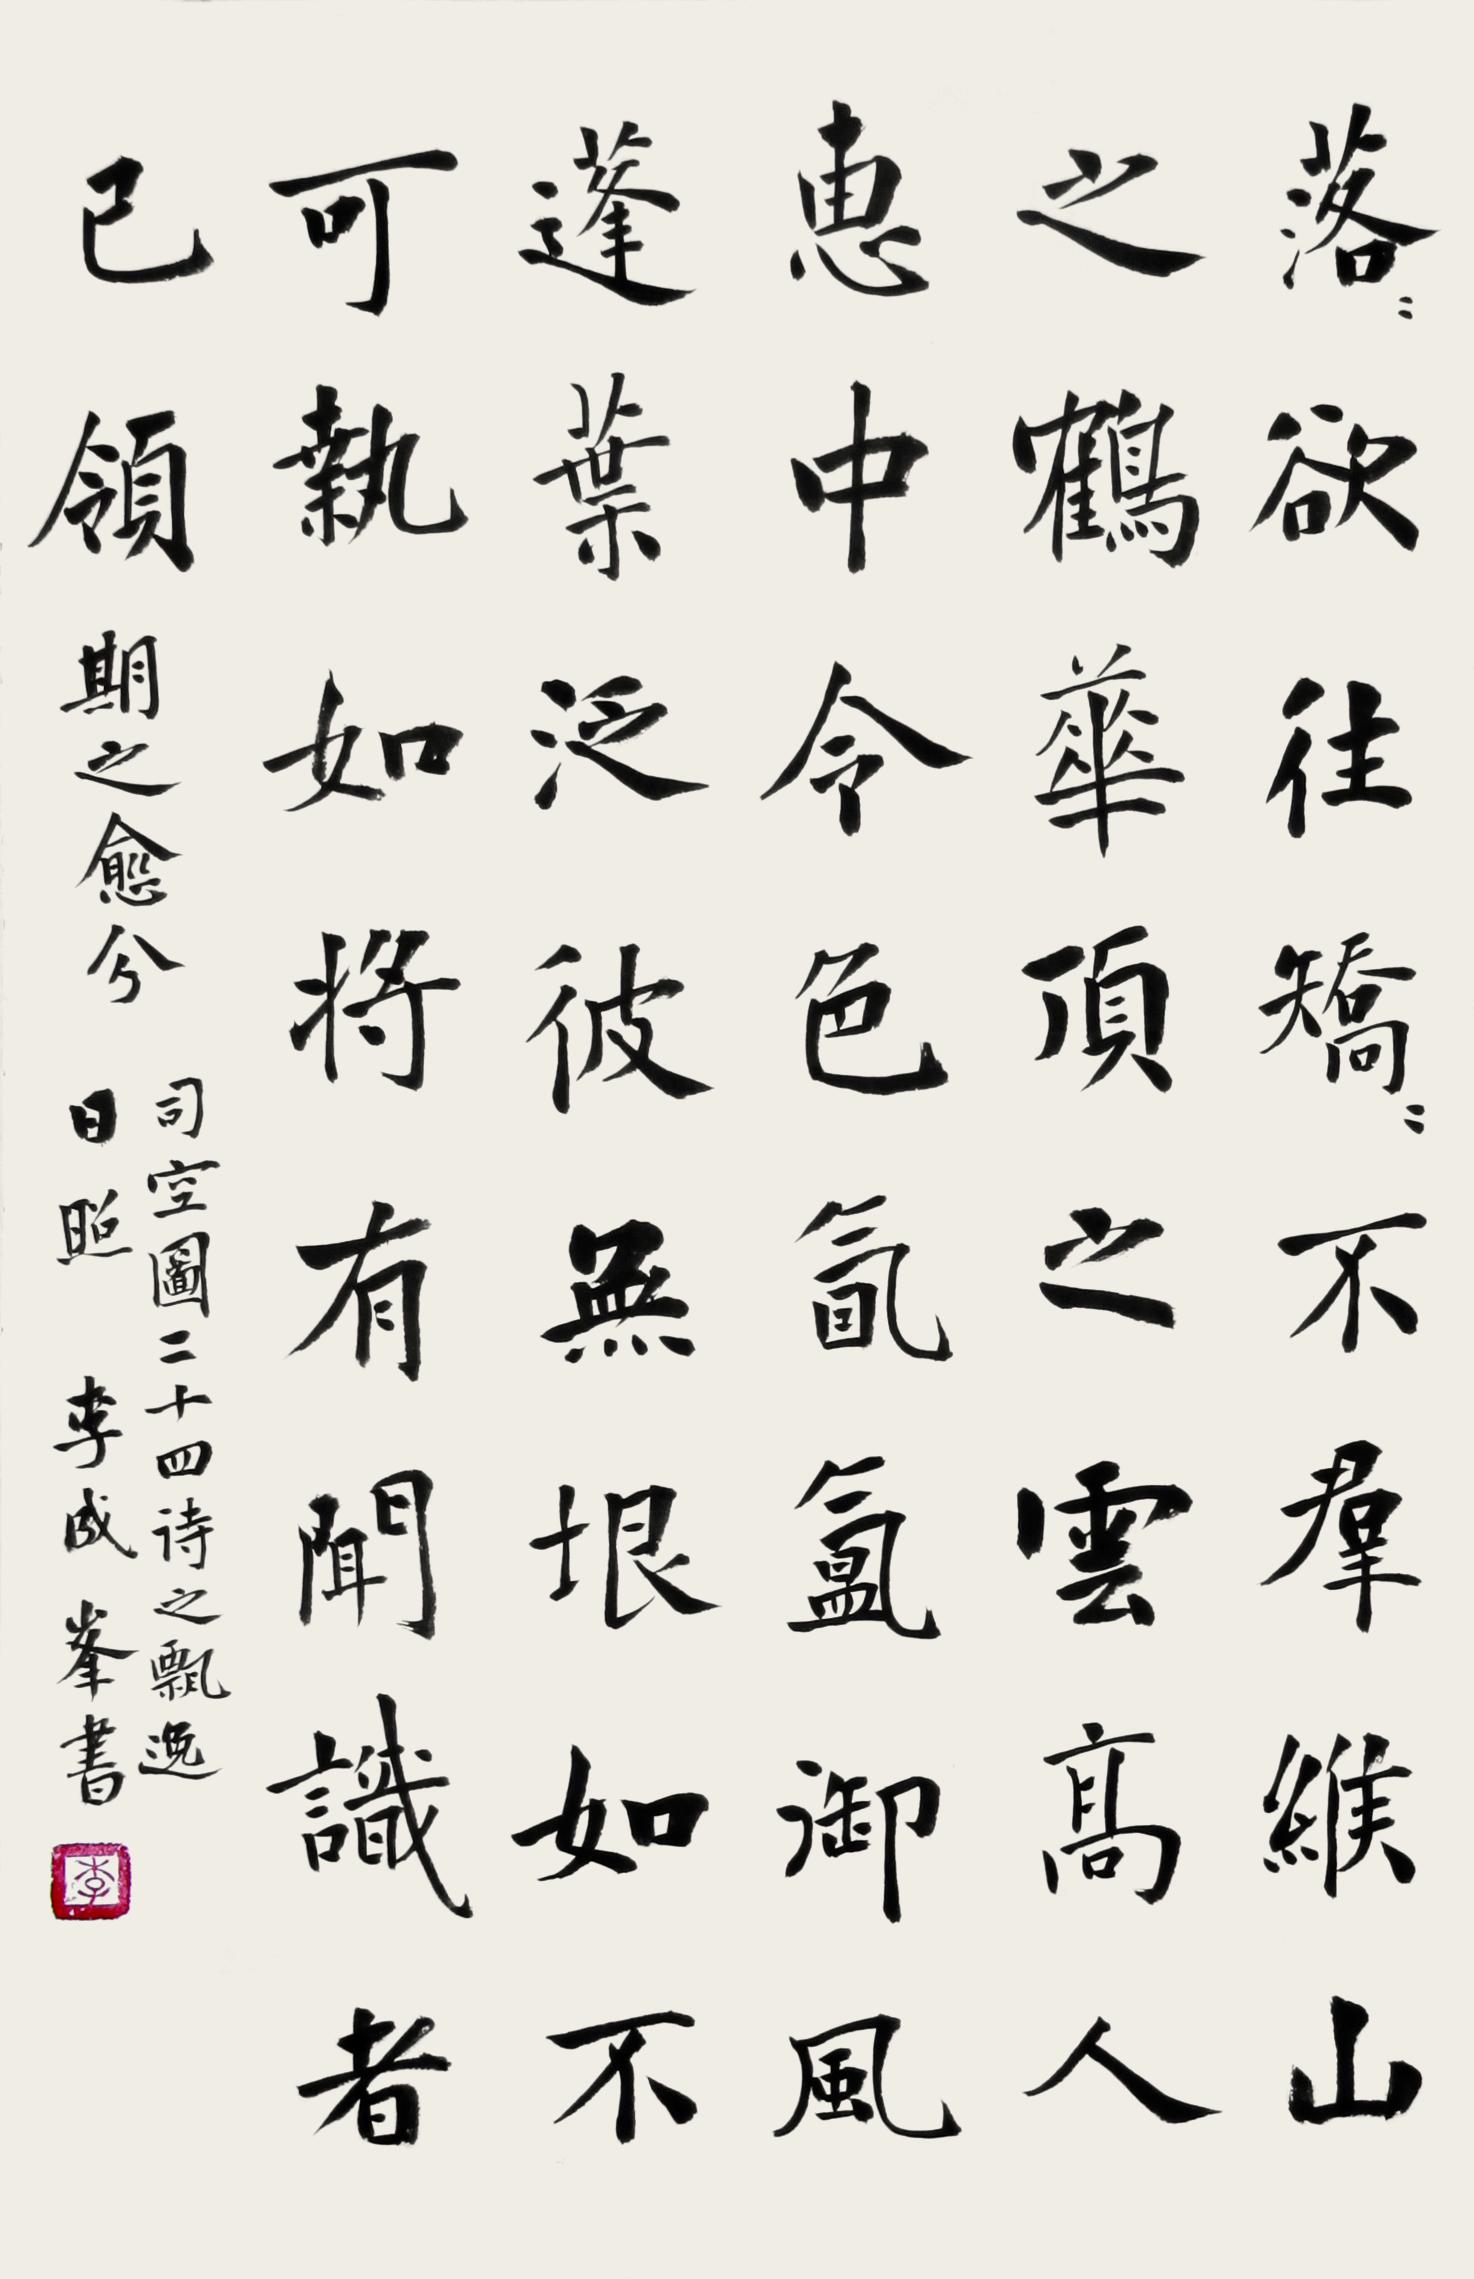 落〻欲往矯〻不羣緱山
之鶴華頂之雲高人
惠中令色氤氳御風
蓬葉泛彼無垠如不
可執如將有聞識者
已領期之愈兮
司空圖二十四诗之飄逸
日照 李成峯書
李